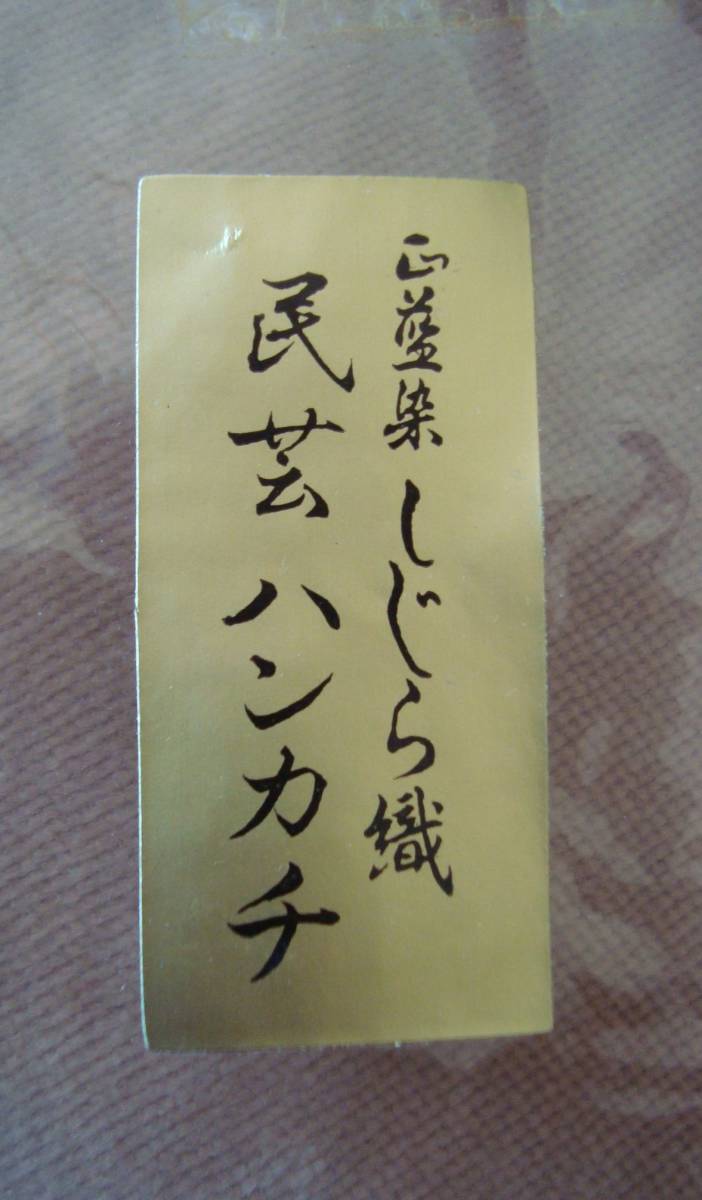 正藍染しじら織
民芸ハンカチ